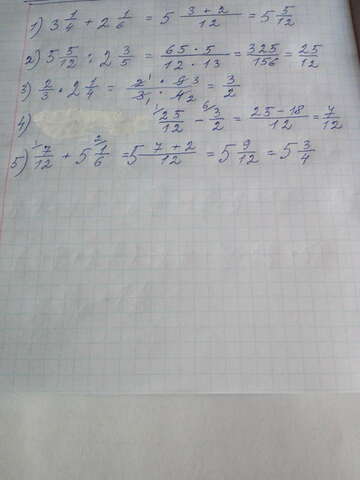 1) 3 1/4 + 2 1/6 = 5 (3+2)/12 = 5 5/12
2) 5 5/12 : 2 3/5 = (65·5)/(12·13) = 325/156 = 25/12
3) 2/3 · 2 1/4 = (2¹·9 3)/(3₁·4 2) = 3/2
4) ¹⁾25/12 - ⁶⁾3/2 = (25-18)/12 = 7/12
5) ¹⁾7/12 + 5 ²⁾1/6 = 5 (7+2)/12 = 5 9/12 = 5 3/4